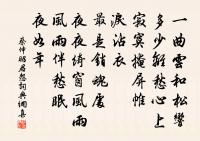 一曲雲和松響
多少離愁心上
寂寞掩屏帷
淚沾衣
最是銷魂處
夜夜綺窗風雨
風雨伴愁眠
夜如年
蔡伸昭君怨詞典網